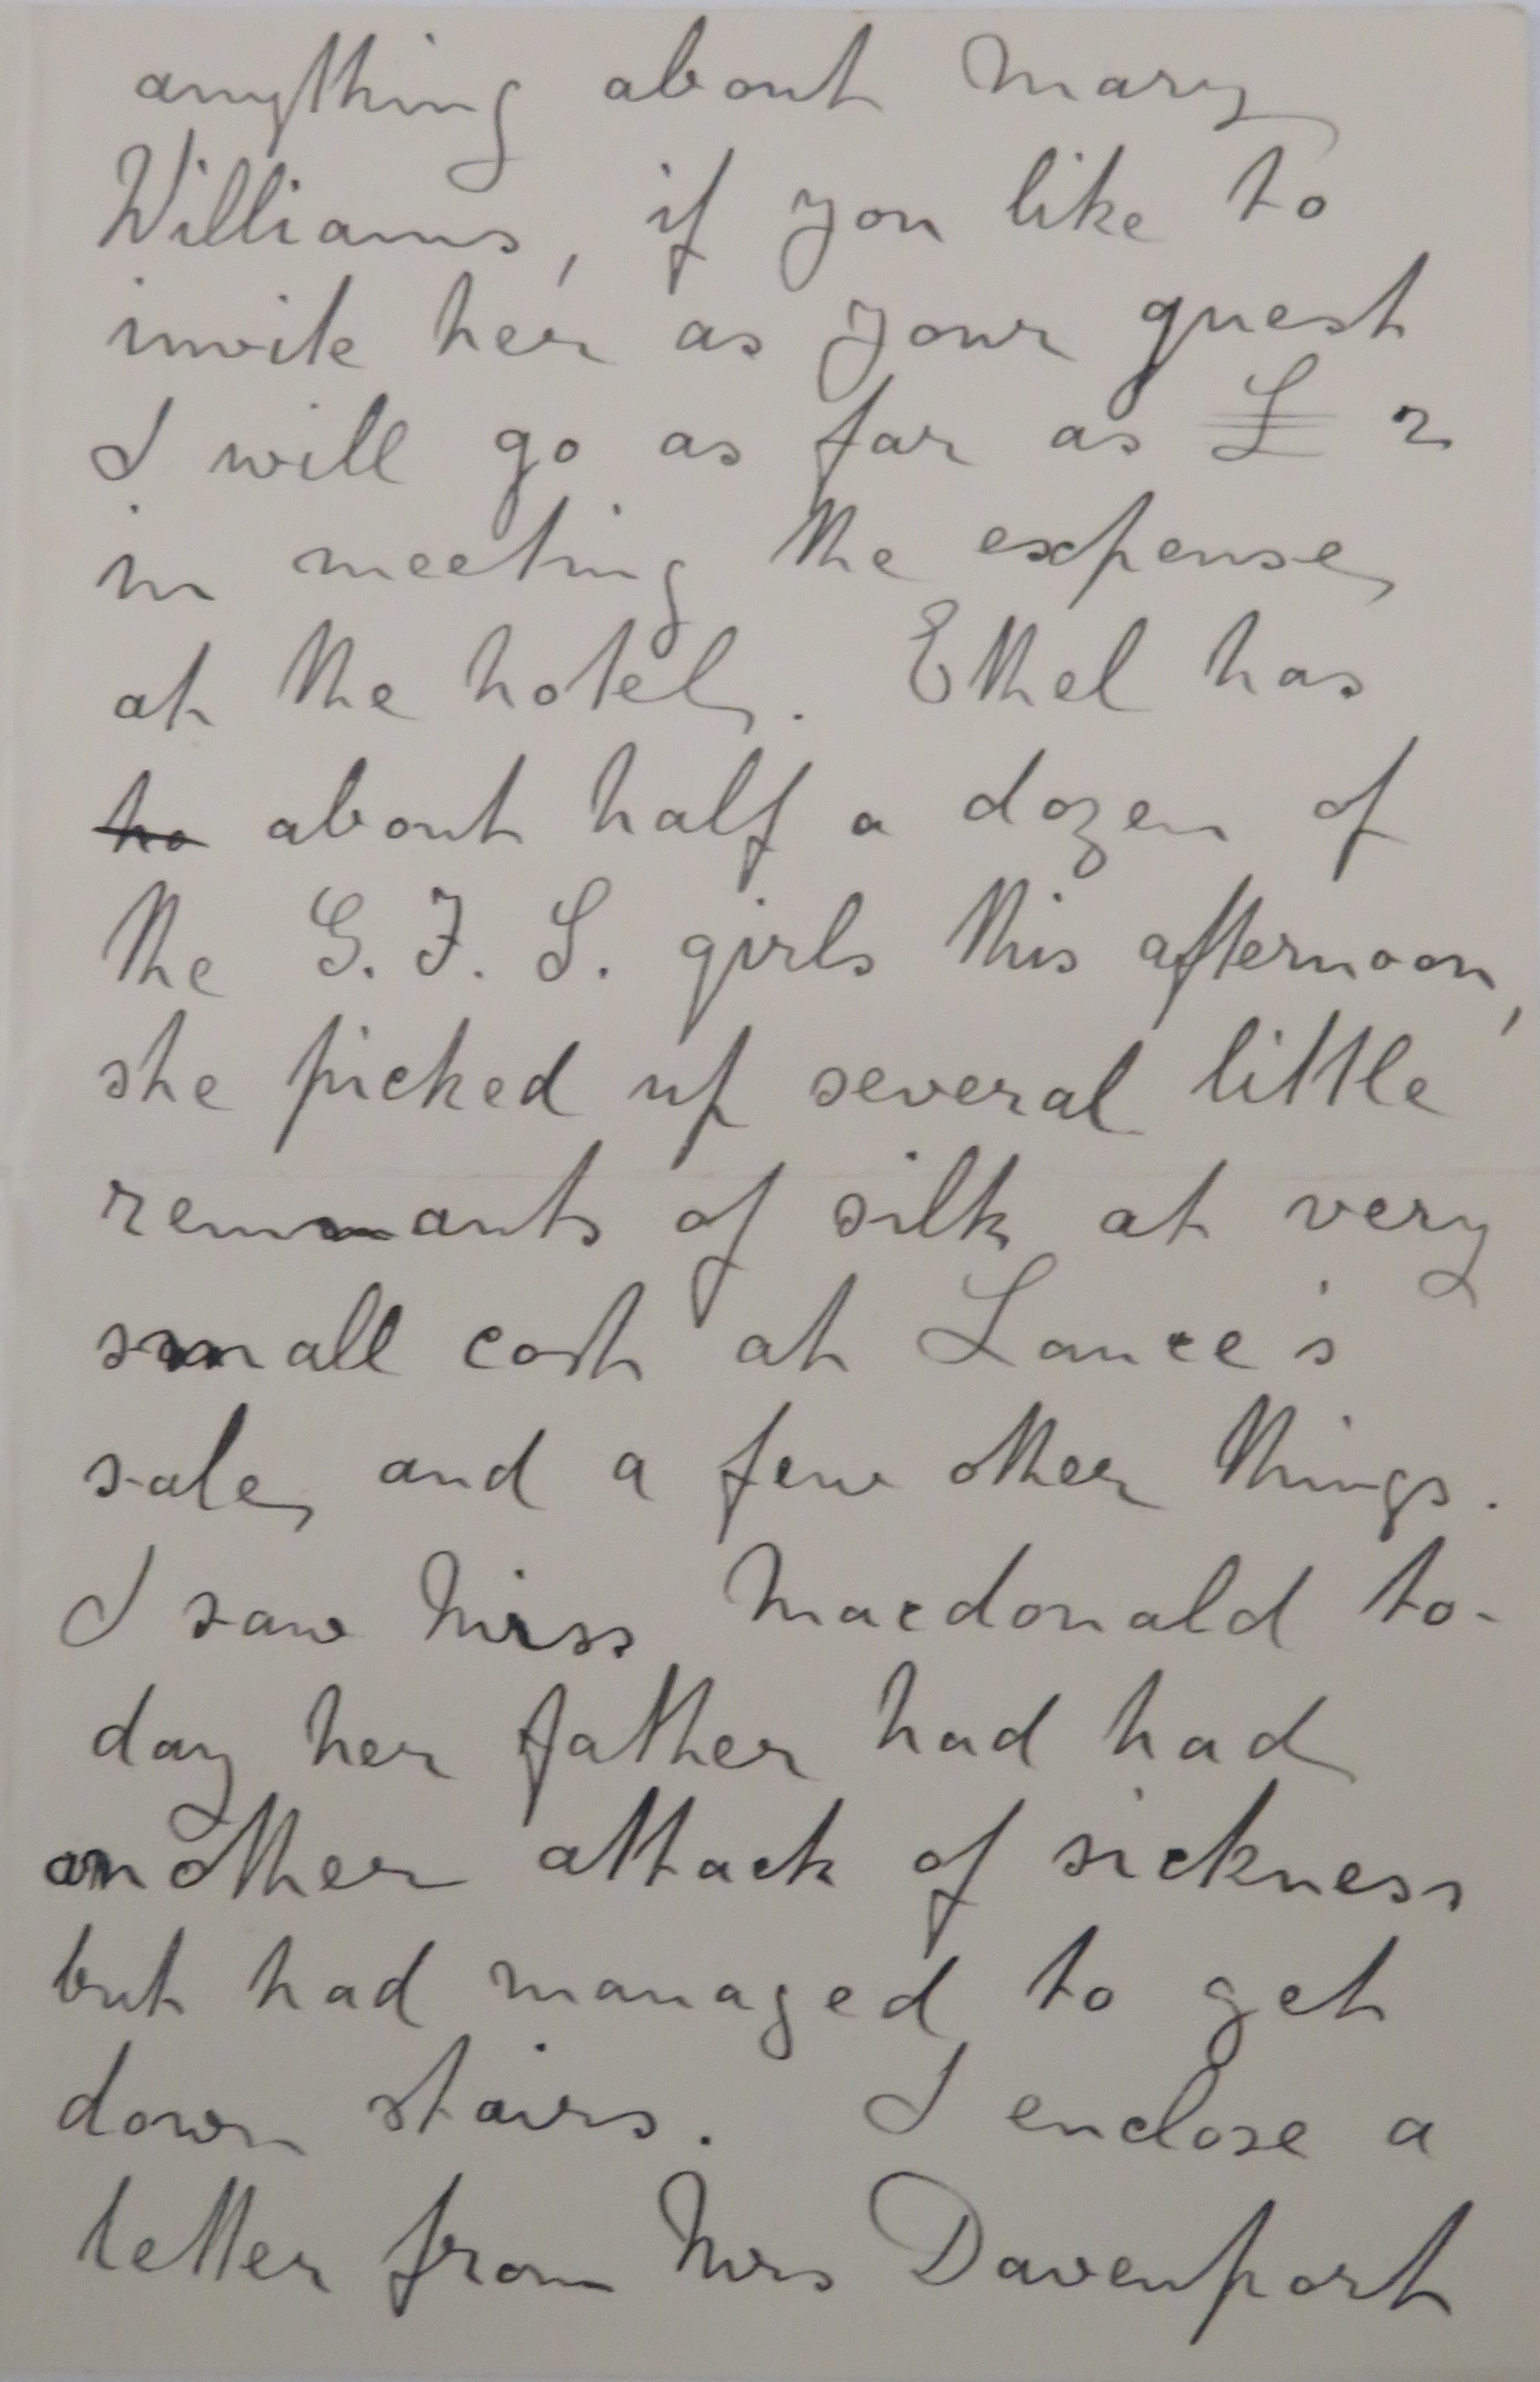 anything about Mary
Williams, if you like to
invite her as your guest
I will go as far as £ 2
in meeting the expense
at the hotel. Ethel has
ho about half a dozen of
the G. F. S. girls this afternoon,
she picked up several little
remnants of silk at very
small cost at Lance's
sale, and a few other things.
I saw Miss Macdonald to-
day her father had had
another attack of sickness
but had managed to get
down stairs. I enclose a
letter from Mrs Davenport